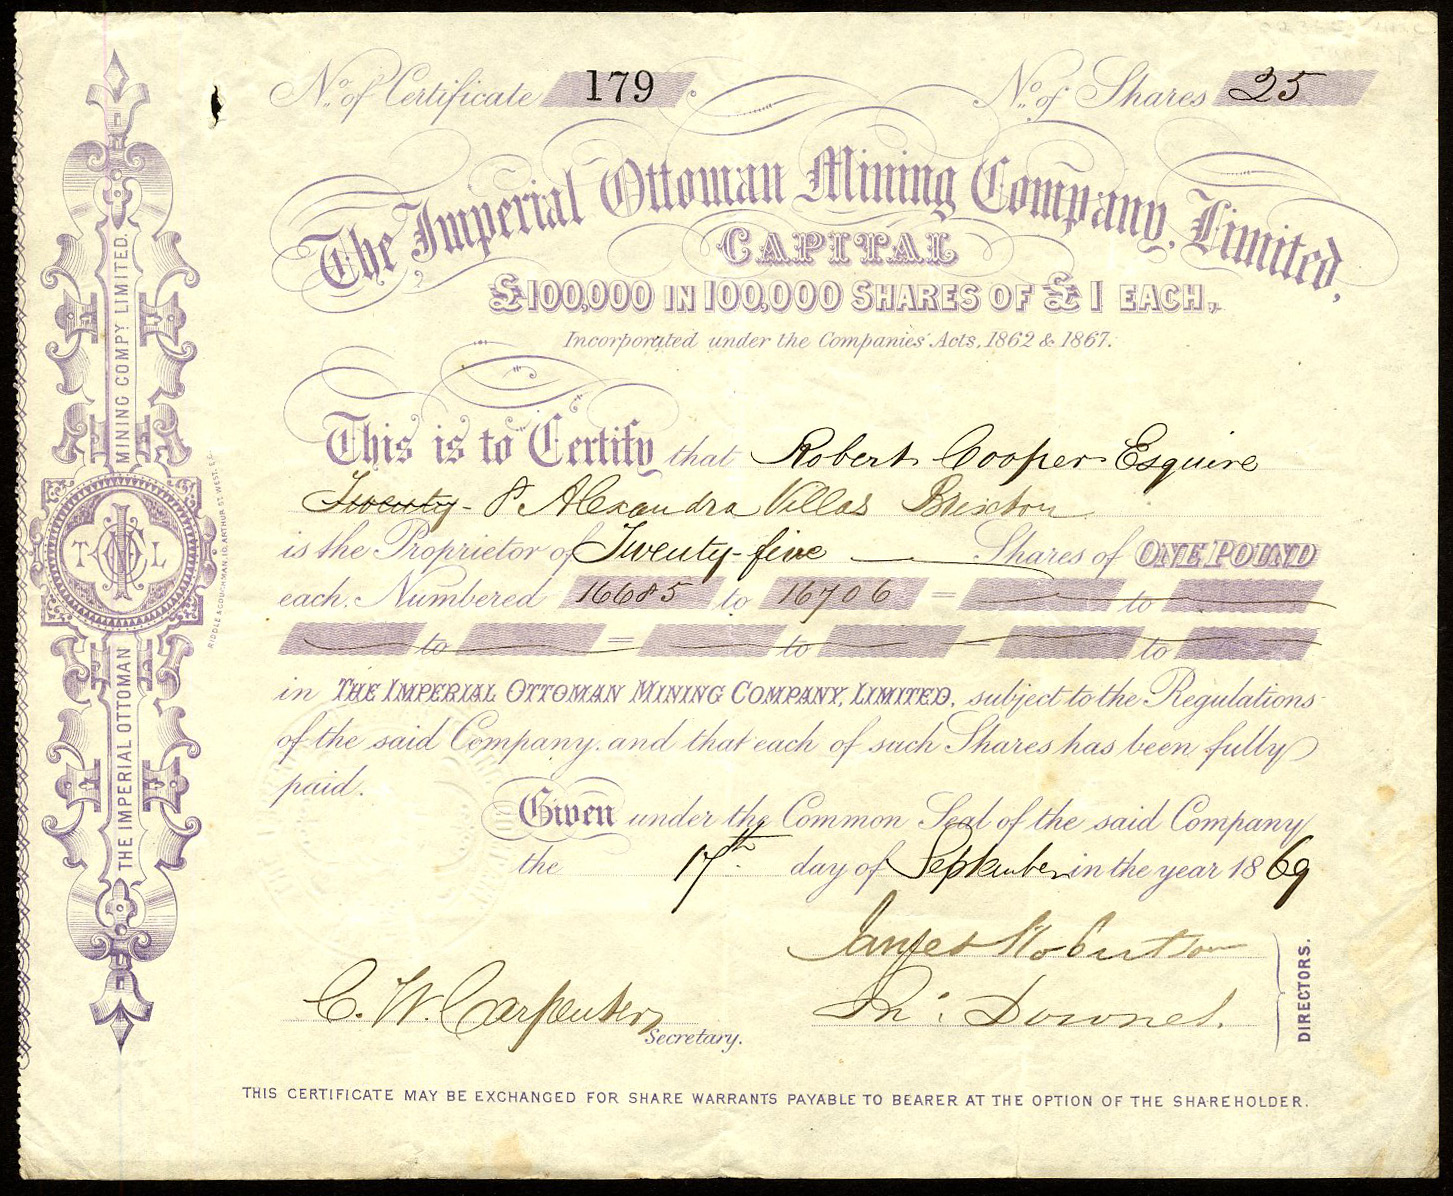 No. of Certificate 179
No. of Shares 25
The Imperial Ottoman Mining Company, Limited,
CAPITAL
£100,000 IN 100,000 SHARES OF £1 EACH,
Incorporated under the Companies' Acts, 1862 & 1867.
This is to Certify that Robert Cooper Esquire
Twenty - 8 Alexandra Villas Brixton
is the Proprietor of Twenty-five Shares of ONE POUND
each. Numbered 16685 to 16706 = to
to = to to
in THE IMPERIAL OTTOMAN MINING COMPANY, LIMITED, subject to the Regulations
of the said Company, and that each of such Shares has been fully
paid.
Given under the Common Seal of the said Company
the 17th day of September in the year 1869
James Robertson
C. W. Carpenter Secretary.
Jn. Downes.
DIRECTORS.
THIS CERTIFICATE MAY BE EXCHANGED FOR SHARE WARRANTS PAYABLE TO BEARER AT THE OPTION OF THE SHAREHOLDER.
THE IMPERIAL OTTOMAN MINING COMPY LIMITED.
T L
RIDDLE & COUCHMAN, 10, ARTHUR ST. WEST, E.C.